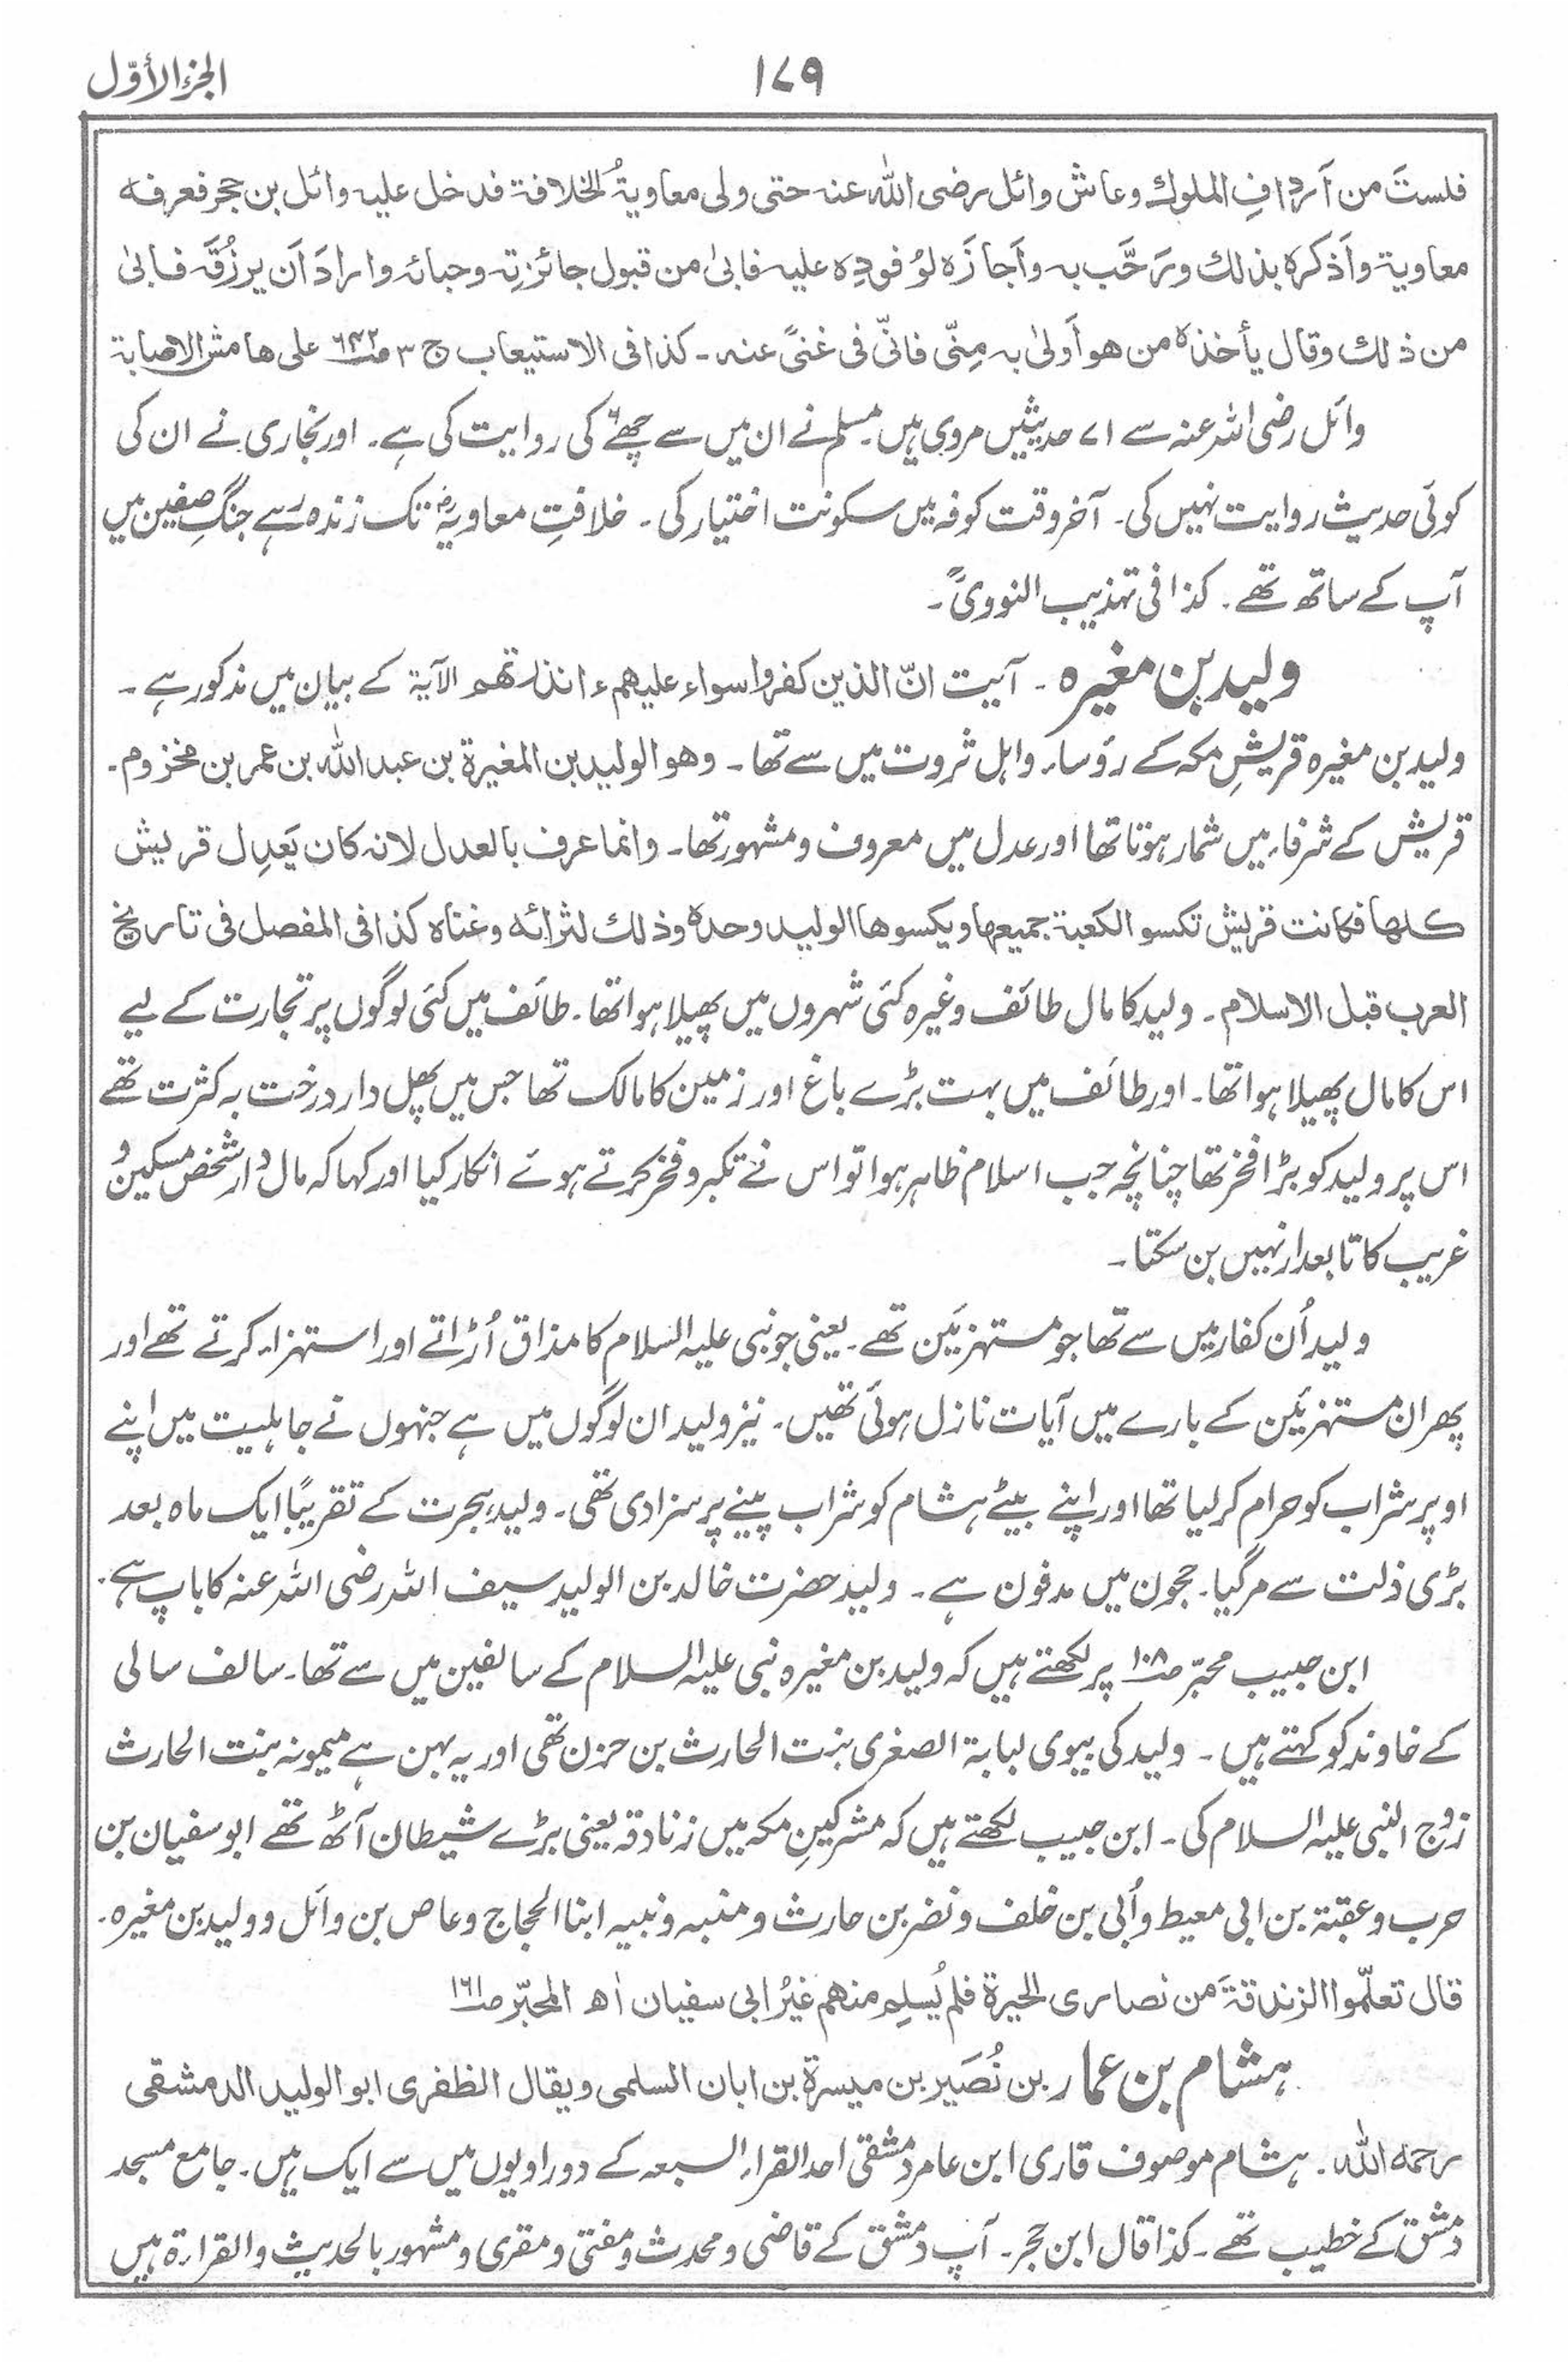 الجزء الأوّل
۱۷۹
فلستَ من اَردافِ الملوك وعاش وائل رضی الله عنه حتی ولی معاویۃُ الخلافۃ فدخل علیہ وائل بن حجر فعرفہ
معاویۃ واَذکرہ بذلك ورَحَّب بہ واَجازَہ لوُفودِہ علیہ فابیٰ من قبول جائزتِہ وحبائہ وارادَ اَن یرزُقَہ فابیٰ
من ذلك وقال یأخذہ من ھو اَولیٰ بہ مِنّی فانّی فی غنیً عنہ ۔ کذا فی الاستیعاب ج ۳ ص۶۴۲ علی ھامش الاصابۃ
وائل رضی اللہ عنہ سے ۷۱ حدیثیں مروی ہیں۔ مسلم نے ان میں سے چھ۶ کی روایت کی ہے۔ اور بخاری نے ان کی
کوئی حدیث روایت نہیں کی۔ آخر وقت کوفہ میں سکونت اختیار کی۔ خلافتِ معاویہؓ تک زندہ رہے جنگِ صفین میں
آپ کے ساتھ تھے۔ کذا فی تہذیب النوویؒ۔
ولید بن مغیرہ ۔ آیت انّ الذین کفروا سواء علیھم ءانذرتھم الآیۃ کے بیان میں مذکور ہے۔
ولید بن مغیرہ قریشِ مکہ کے رؤساء واہل ثروت میں سے تھا۔ وھو الولید بن المغیرۃ بن عبد الله بن عمر بن مخزوم۔
قریش کے شرفاء میں شمار ہوتا تھا اور عدل میں معروف ومشہور تھا۔ وانما عرف بالعدل لانہ کان یَعدِل قریش
کلھا فکانت قریش تکسو الکعبۃ جمیعھا ویکسوھا الولید وحدہ وذلك لثرائہ وغناہ کذا فی المفصل فی تاریخ
العرب قبل الاسلام۔ ولید کا مال طائف وغیرہ کئی شہروں میں پھیلا ہوا تھا۔ طائف میں کئی لوگوں پر تجارت کے لیے
اس کا مال پھیلا ہوا تھا۔ اور طائف میں بہت بڑے باغ اور زمین کا مالک تھا جس میں پھل دار درخت بہ کثرت تھے
اس پر ولید کو بڑا فخر تھا چنانچہ جب اسلام ظاہر ہوا تو اس نے تکبر وفخر کرتے ہوئے انکار کیا اور کہا کہ مال دار شخص مسکین و
غریب کا تابعدار نہیں بن سکتا۔
ولید اُن کفار میں سے تھا جو مستہزئین تھے۔ یعنی جو نبی علیہ السلام کا مذاق اُڑاتے اور استہزاء کرتے تھے اور
پھر ان مستہزئین کے بارے میں آیات نازل ہوئی تھیں۔ نیز ولید ان لوگوں میں ہے جنہوں نے جاہلیت میں اپنے
اوپر شراب کو حرام کر لیا تھا اور اپنے بیٹے ہشام کو شراب پینے پر سزا دی تھی۔ ولید ہجرت کے تقریبًا ایک ماہ بعد
بڑی ذلت سے مرگیا۔ حجون میں مدفون ہے۔ ولید حضرت خالد بن الولید سیف اللہ رضی اللہ عنہ کا باپ ہے۔
ابن حبیب محبّر ص۱۰۸ پر لکھتے ہیں کہ ولید بن مغیرہ نبی علیہ السلام کے سالفین میں سے تھا۔ سالف سالی
کے خاوند کو کہتے ہیں۔ ولید کی بیوی لبابۃ الصغری بنت الحارث بن حزن تھی اور یہ بہن ہے میمونہ بنت الحارث
زوج النبی علیہ السلام کی۔ ابن حبیب لکھتے ہیں کہ مشرکینِ مکہ میں زنادقہ یعنی بڑے شیطان آٹھ تھے ابوسفیان بن
حرب وعقبۃ بن ابی معیط واُبی بن خلف ونضر بن حارث ومنبہ ونبیہ ابنا الحجاج وعاص بن وائل وولید بن مغیرہ۔
قال تعلّموا الزندقۃَ من نصاری الحیرۃ فلم یُسلِم منھم غیرُ ابی سفیان اھ المحبّر ص۱۶۱
ہشام بن عمار بن نُصَیر بن میسرۃ بن ابان السلمی ویقال الظفری ابو الولید الدمشقی
رحمہ الله۔ ہشام موصوف قاری ابن عامر دمشقی احد القراء السبعہ کے دو راویوں میں سے ایک ہیں۔ جامع مسجد
دمشق کے خطیب تھے۔ کذا قال ابن حجر۔ آپ دمشق کے قاضی ومحدث ومفتی ومقری ومشہور بالحدیث والقراءۃ ہیں